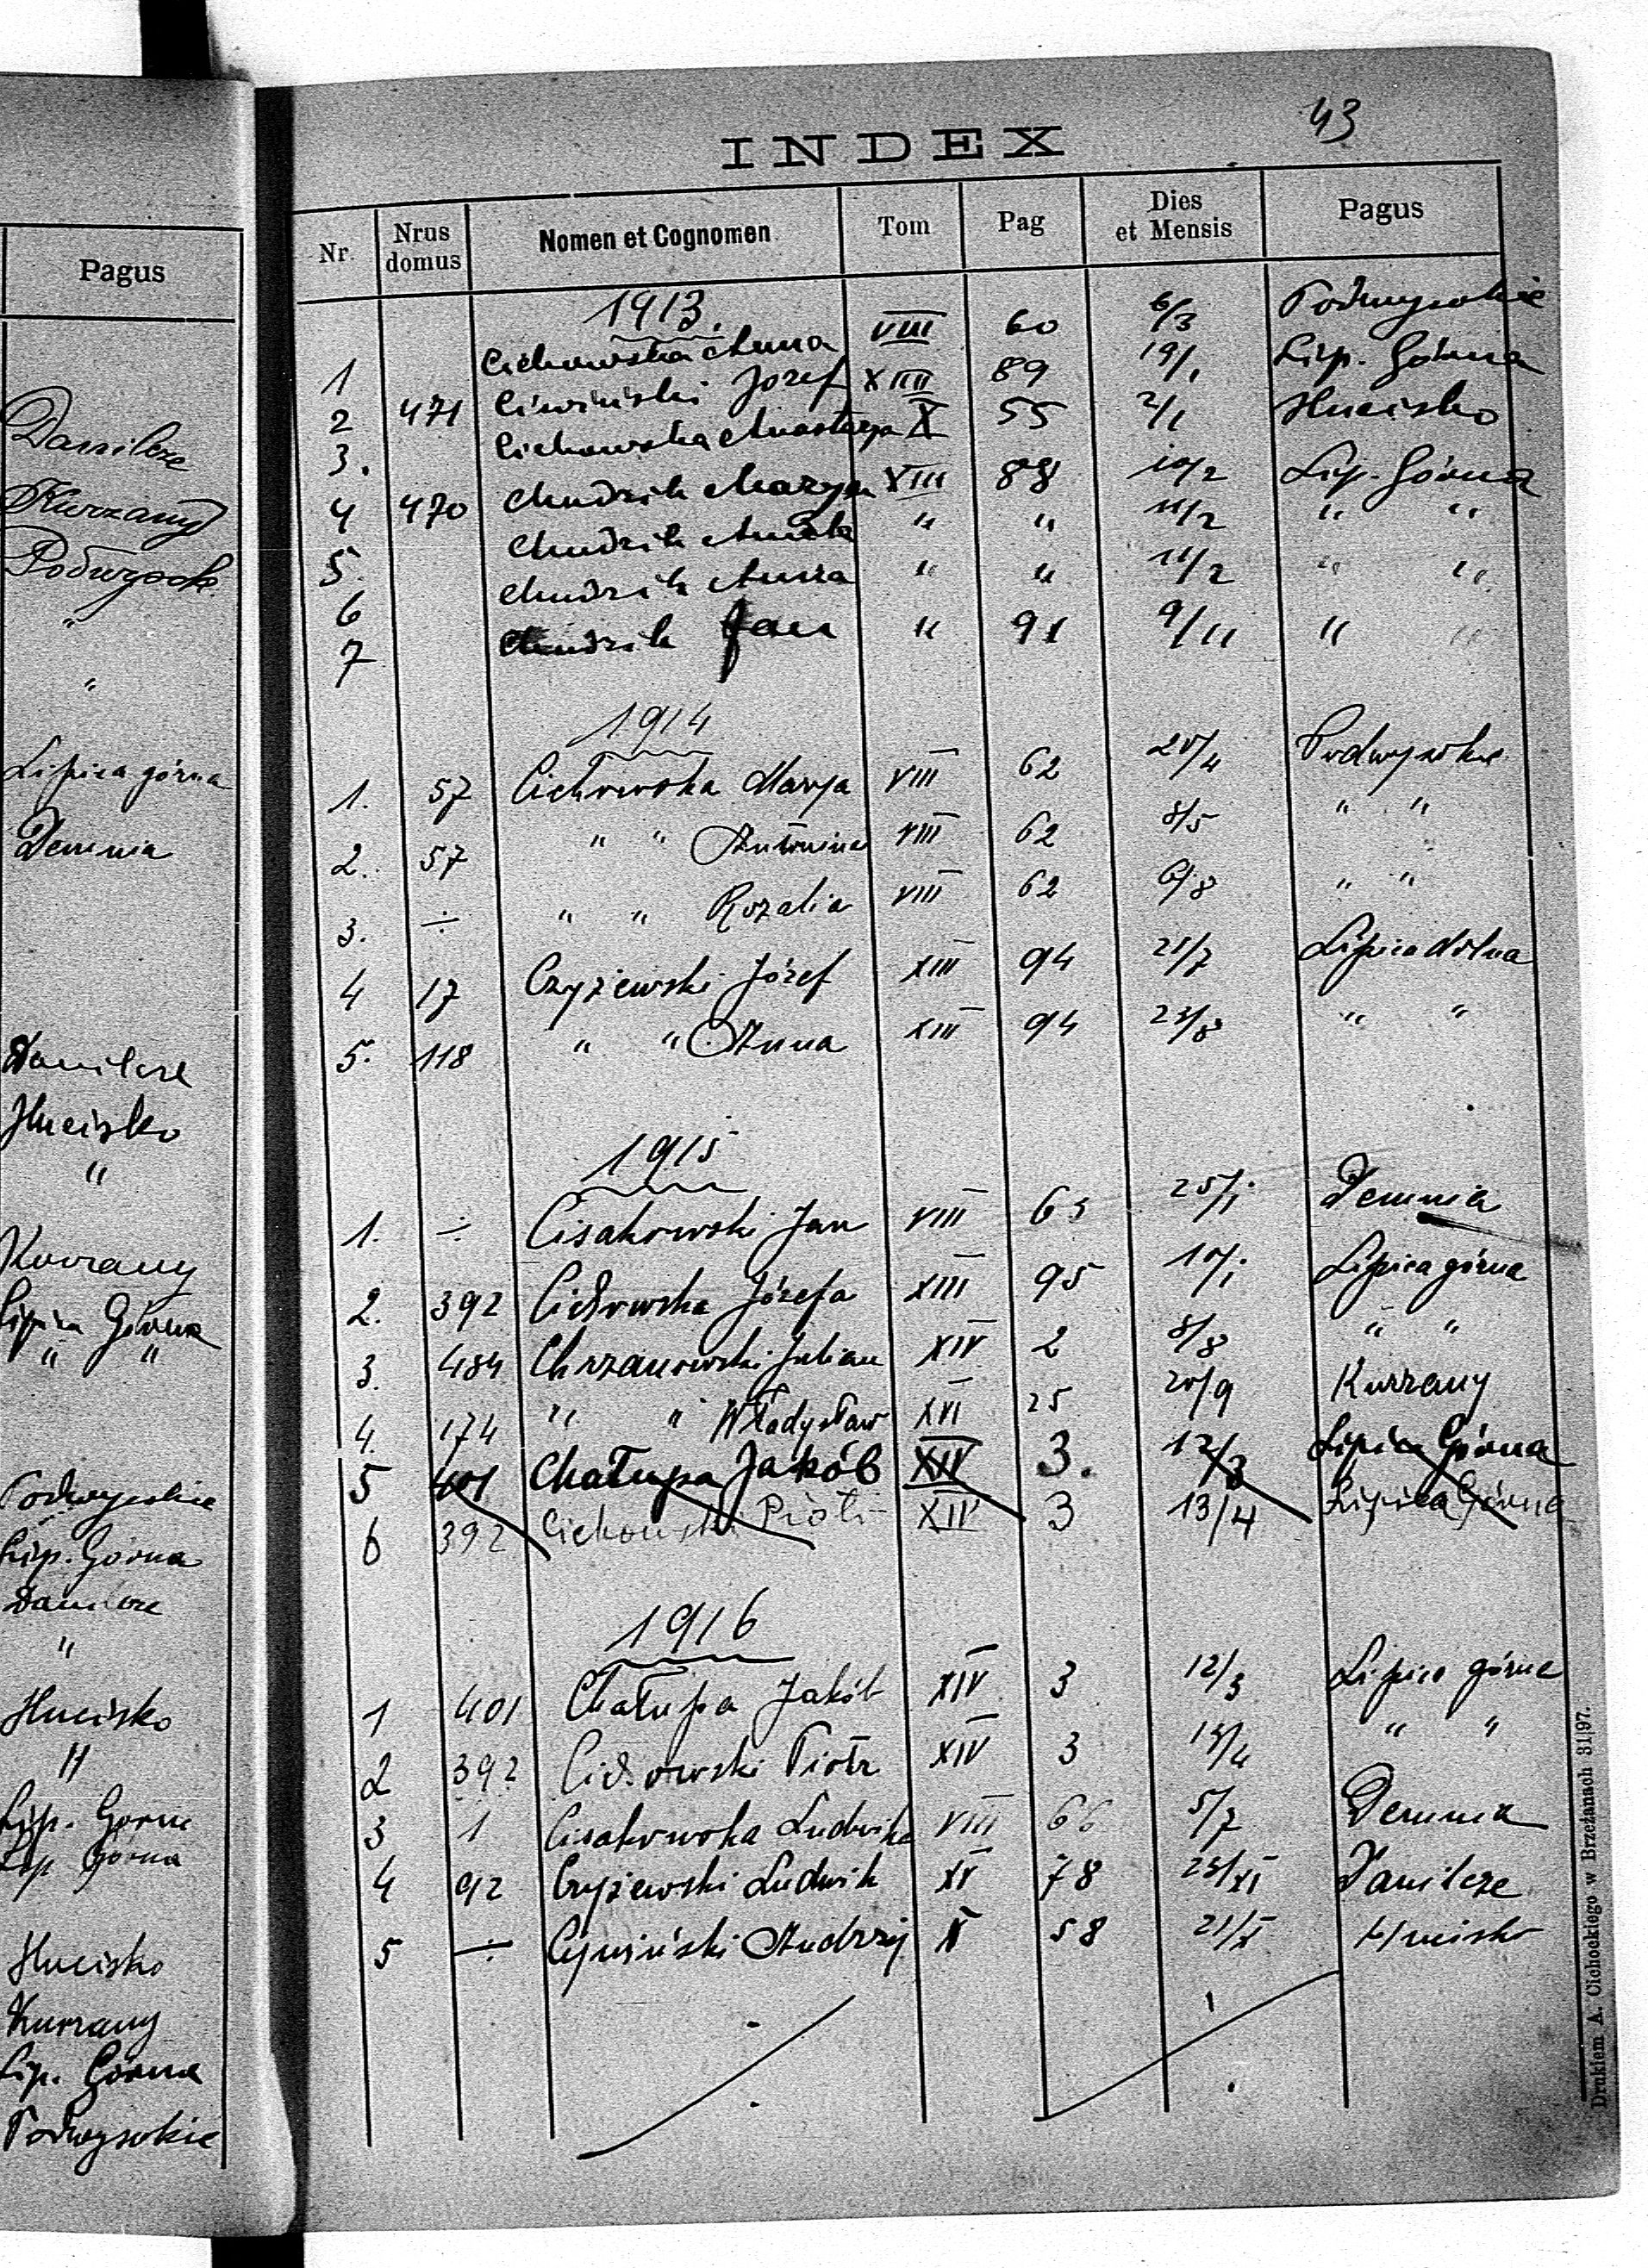 Pagus
Danilcze
Kurzany
Podwysok
"
"
Lipica górna
Demnia
Danilcze
Hucisko
"
Kurzany
Lipica Górna
" "
Podwysokie
Lip. Górna
Danilcze
"
Hucisko
"
Lip. Górna
Lip Górna
Hucisko
Kurzany
Lip. Górna
Podwysokie
43
INDEX
Nr. Nrus domus Nomen et Cognomen Tom Pag Dies et Mensis Pagus
1913.
1 Cichowska Anna VIII 60 6/3 Podwysokie
2 471 Ciwiński Józef XIII 89 19/1 Lip. Górna
3. Cichowska Anastazya X 55 2/1 Hucisko
4 470 Chudzik Marya XIII 88 10/2 Lip. Górna
5. Chudzik " " 11/2 " "
6 Chudzik Anna " " 11/2 " "
7 Chudzik Jan " 91 9/11 " "
1914
1. 57 Cichowska Marya VIII 62 20/4 Podwysokie
2. 57 " " Antonina VIII 62 8/5 " "
3. ÷ " " Rozalia VIII 62 6/8 " "
4 17 Czyżewski Józef XIII 94 21/7 Lipica dolna
5. 118 " " Anna XIII 94 23/8 " "
1915
1. ÷ Cisakowski Jan VIII 63 25/1 Demnia
2. 392 Cichowska Józefa XIII 95 10/1 Lipica górna
3. 484 Chrzanowski Julian XIV 2 8/8 " "
4. 174 " " Władysław XVI 25 20/9 Kurzany
5 401 Chałupa Jakób XIV 3. 12/3 Lipica Górna
6 392 Cichowski Piotr XIV 3 13/4 Lipica Górna
1916
1 401 Chałupa Jakób XIV 3 12/3 Lipica górna
2 392 Cichowski Piotr XIV 3 13/4 " "
3 1 Cisakowska Ludwika VIII 66 5/7 Demnia
4 92 Czyżewski Ludwik XV 78 23/XI Danilcze
5 ÷ Cywiński Andrzej X 58 21/X Hucisko
Drukiem A. Cichockiego w Brzeżanach 31|97.